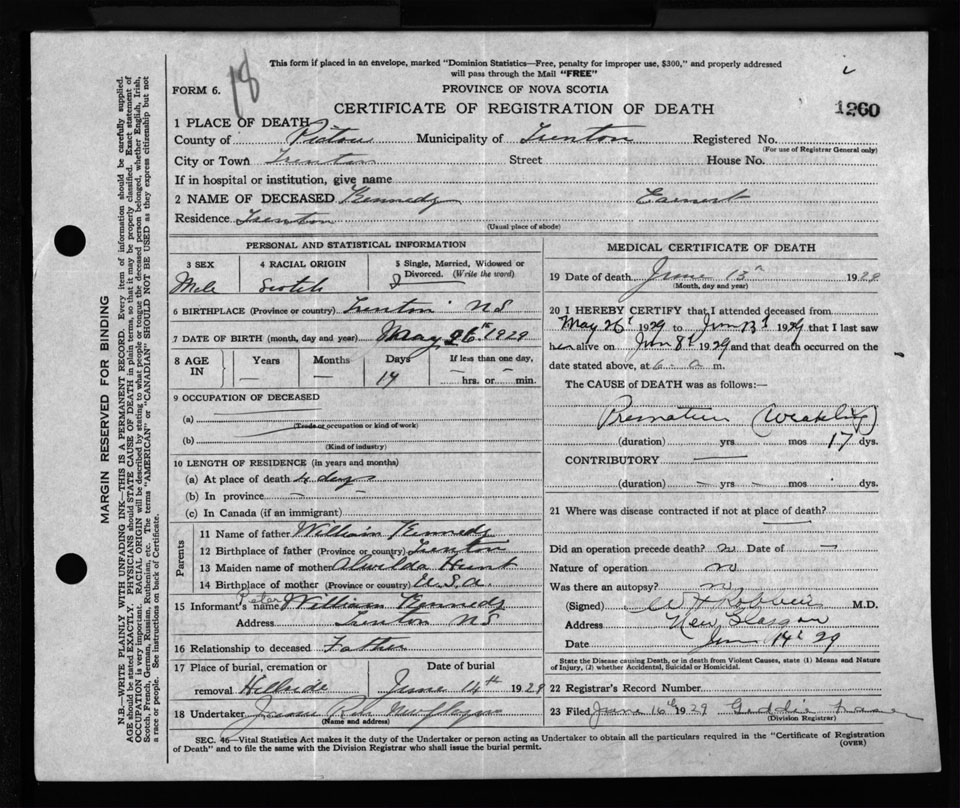 18
This form if placed in an envelope, marked "Dominion Statistics—Free, penalty for improper use, $300," and properly addressed
will pass through the Mail "FREE"
i
FORM 6.
PROVINCE OF NOVA SCOTIA
CERTIFICATE OF REGISTRATION OF DEATH
1260
1 PLACE OF DEATH
County of Pictou Municipality of Trenton Registered No.
(For use of Registrar General only)
City or Town Trenton Street House No.
If in hospital or institution, give name
2 NAME OF DECEASED Kennedy Earnest
Residence Trenton
(Usual place of abode)
PERSONAL AND STATISTICAL INFORMATION
3 SEX 4 RACIAL ORIGIN 5 Single, Married, Widowed or
Divorced. (Write the word)
Male Scotch S
6 BIRTHPLACE (Province or country) Trenton NS
7 DATE OF BIRTH (month, day and year) May 26th 1929
8 AGE IN Years Months Days If less than one day,
— — 14 — hrs. or — min.
9 OCCUPATION OF DECEASED
(a)
(Trade or occupation or kind of work)
(b)
(Kind of industry)
10 LENGTH OF RESIDENCE (in years and months)
(a) At place of death days
(b) In province
(c) In Canada (if an immigrant)
Parents
11 Name of father William Kennedy
12 Birthplace of father (Province or country) Trenton
13 Maiden name of mother Alwilda Hunt
14 Birthplace of mother (Province or country) U.S.A.
15 Informant's name Peter William Kennedy
Address Trenton NS
16 Relationship to deceased Father
17 Place of burial, cremation or Date of burial
removal Hillside June 14th 1929
18 Undertaker James New Glasgow
(Name and address)
MEDICAL CERTIFICATE OF DEATH
19 Date of death June 13th 1929
(Month, day and year)
20 I HEREBY CERTIFY that I attended deceased from
May 26th 1929 to June 13th 1929 that I last saw
him alive on June 8th 1929 and that death occurred on the
date stated above, at 6 a m.
The CAUSE of DEATH was as follows:—
Premature (Weakling)
(duration) yrs. mos 17 dys.
CONTRIBUTORY —
(duration) — yrs. — mos. — dys.
21 Where was disease contracted if not at place of death?
Did an operation precede death? no Date of —
Nature of operation no
Was there an autopsy? no
(Signed) M.D.
Address New Glasgow
Date June 14th 29
State the Disease causing Death, or in death from Violent Causes, state (1) Means and Nature
of Injury, (2) whether Accidental, Suicidal or Homicidal.
22 Registrar's Record Number
23 Filed June 16th 1929 Geddie Fraser
(Division Registrar)
SEC. 46—Vital Statistics Act makes it the duty of the Undertaker or person acting as Undertaker to obtain all the particulars required in the "Certificate of Registration
of Death" and to file the same with the Division Registrar who shall issue the burial permit.
(OVER)
MARGIN RESERVED FOR BINDING
N.B.—WRITE PLAINLY WITH UNFADING INK—THIS IS A PERMANENT RECORD. Every item of information should be carefully supplied.
AGE should be stated EXACTLY. PHYSICIANS should STATE CAUSE OF DEATH in plain terms, so that it may be properly classified. Exact statement of
OCCUPATION is very important. RACIAL ORIGIN will be described by stating to what people or tongue the deceased person belonged, whether English, Irish,
Scotch, French, German, Russian, Ruthenian, etc. The terms "AMERICAN" or "CANADIAN" SHOULD NOT BE USED as they express citizenship but not
a race or people. See instructions on back of Certificate.